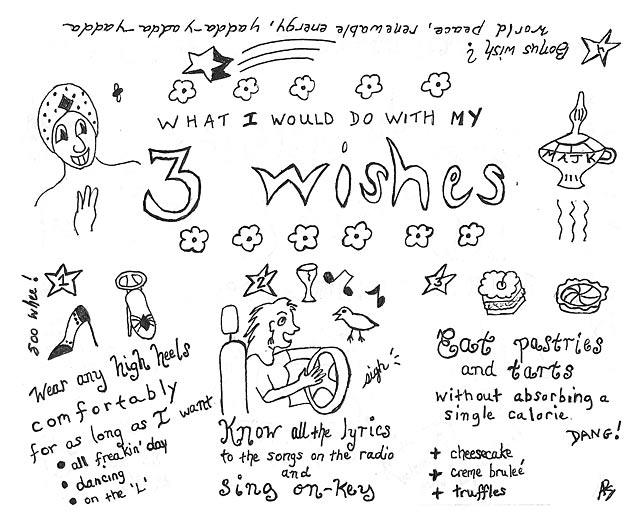 world peace, renewable energy, yadda-yadda-yadda
Bonus wish?
WHAT I WOULD DO WITH MY
3 wishes
1
Soo whee!
Wear any high heels
comfortably
for as long as I want
• all freakin' day
• dancing
• on the 'L'
2
sigh
Know all the lyrics
to the songs on the radio
and
sing on-key
3
Eat pastries
and tarts
without absorbing a
single calorie.
DANG!
+ cheesecake
+ creme bruleé
+ truffles